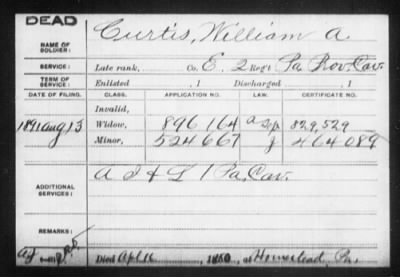 DEAD
NAME OF SOLDIER: Curtis, William A.
SERVICE: Late rank, Co. E, 2 Reg't Pa. Prov. Cav.
TERM OF SERVICE: Enlisted , 1 Discharged , 1
DATE OF FILING. CLASS. APPLICATION NO. LAW. CERTIFICATE NO.
Invalid,
1891 Aug 13 Widow, 896164 829,529
Minor, 524667 g 464089
ADDITIONAL SERVICES: A I & L 1 Pa. Cav.
REMARKS:
Died Apl 16, 18 0, at Homestead, Pa.